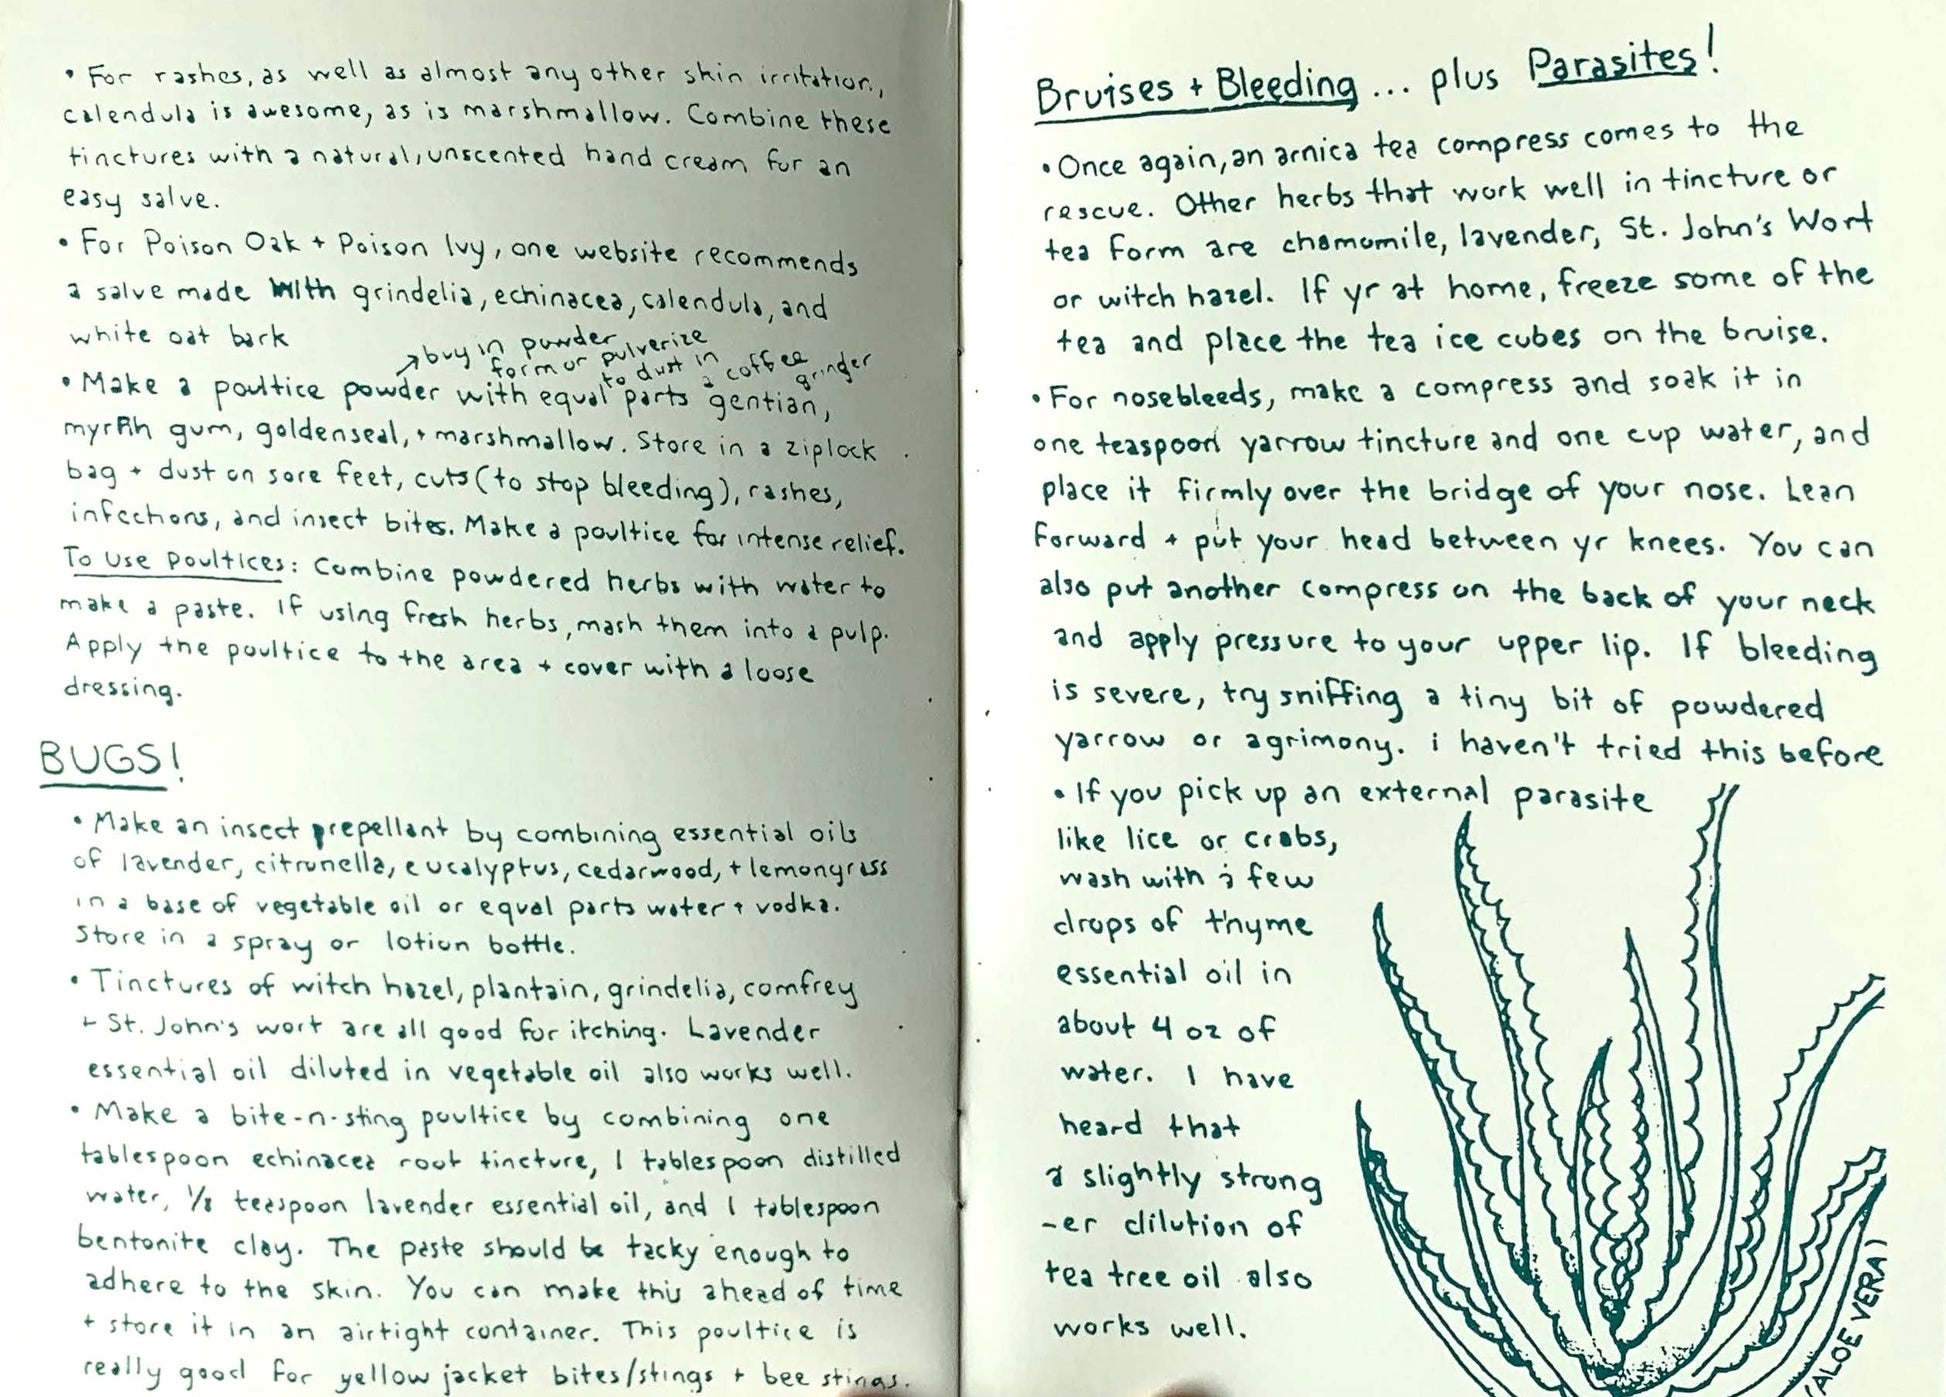 • For rashes, as well as almost any other skin irritation,
calendula is awesome, as is marshmallow. Combine these
tinctures with a natural, unscented hand cream for an
easy salve.
• For Poison Oak + Poison Ivy, one website recommends
a salve made with grindelia, echinacea, calendula, and
white oat bark
↗ buy in powder
form or pulverize
to dust in
a coffee
grinder
• Make a poultice powder with equal parts gentian,
myrrh gum, goldenseal, + marshmallow. Store in a ziplock
bag + dust on sore feet, cuts (to stop bleeding), rashes,
infections, and insect bites. Make a poultice for intense relief.
To Use Poultices: Combine powdered herbs with water to
make a paste. If using fresh herbs, mash them into a pulp.
Apply the poultice to the area + cover with a loose
dressing.
BUGS!
• Make an insect repellant by combining essential oils
of lavender, citronella, eucalyptus, cedarwood, + lemongrass
in a base of vegetable oil or equal parts water + vodka.
Store in a spray or lotion bottle.
• Tinctures of witch hazel, plantain, grindelia, comfrey
+ St. John's wort are all good for itching. Lavender
essential oil diluted in vegetable oil also works well.
• Make a bite-n-sting poultice by combining one
tablespoon echinacea root tincture, 1 tablespoon distilled
water, 1/8 teaspoon lavender essential oil, and 1 tablespoon
bentonite clay. The paste should be tacky enough to
adhere to the skin. You can make this ahead of time
+ store it in an airtight container. This poultice is
really good for yellow jacket bites/stings + bee stings.
Bruises + Bleeding... plus Parasites!
• Once again, an arnica tea compress comes to the
rescue. Other herbs that work well in tincture or
tea form are chamomile, lavender, St. John's Wort
or witch hazel. If yr at home, freeze some of the
tea and place the tea ice cubes on the bruise.
• For nosebleeds, make a compress and soak it in
one teaspoon yarrow tincture and one cup water, and
place it firmly over the bridge of your nose. Lean
forward + put your head between yr knees. You can
also put another compress on the back of your neck
and apply pressure to your upper lip. If bleeding
is severe, try sniffing a tiny bit of powdered
yarrow or agrimony. i haven't tried this before
• If you pick up an external parasite
like lice or crabs,
wash with a few
drops of thyme
essential oil in
about 4 oz of
water. I have
heard that
a slightly strong
-er dilution of
tea tree oil also
works well.
(ALOE VERA)